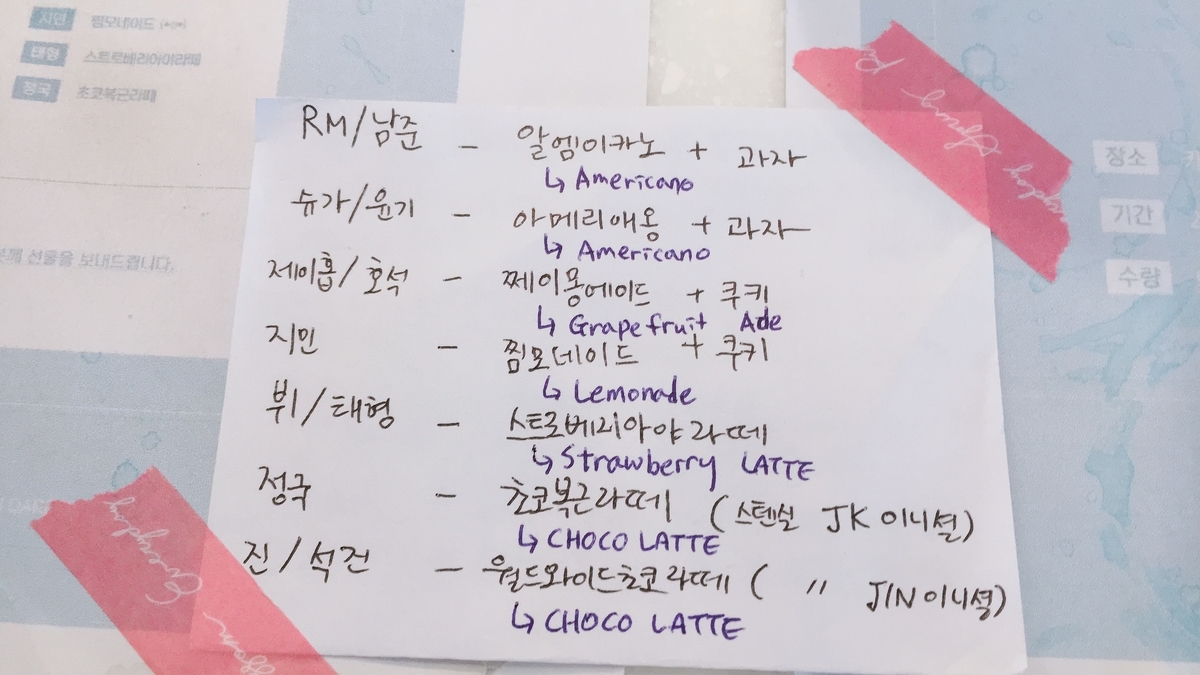 지민 찜모네이드 (•ө•)
태형 스트로베리아야라떼
정국 초코복근라떼
선물을 보내드립니다.
RM/남준 - 알엠이카노 + 과자
↳ Americano
슈가/윤기 - 아메리애옹 + 과자
↳ Americano
제이홉/호석 - 쩨이뽕에이드 + 쿠키
↳ Grapefruit Ade
지민 - 찜모네이드 + 쿠키
↳ Lemonade
뷔/태형 - 스트로베리아야라떼
↳ Strawberry LATTE
정국 - 초코복근라떼 (스텐실 JK 이니셜)
↳ CHOCO LATTE
진/석진 - 월드와이드초코라떼 ( 〃 JIN 이니셜)
↳ CHOCO LATTE
장소
기간
수량
Everyday